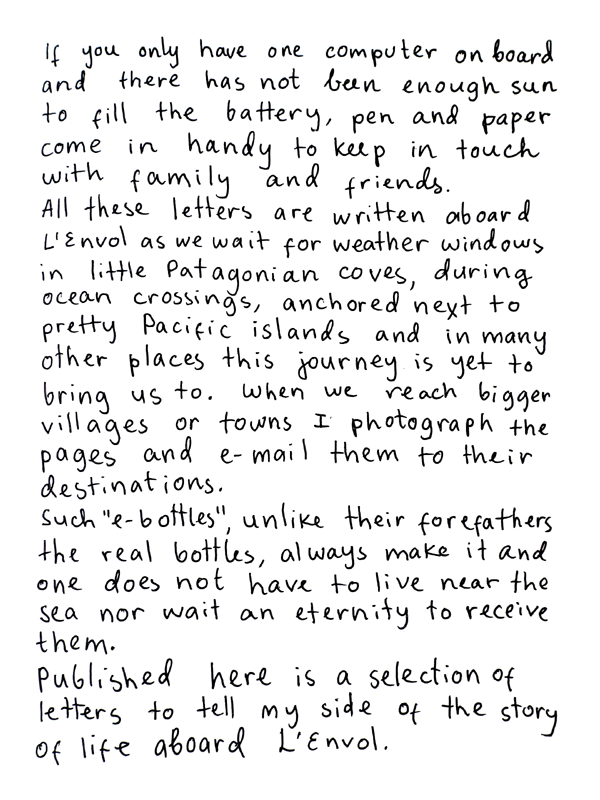 If you only have one computer on board
and there has not been enough sun
to fill the battery, pen and paper
come in handy to keep in touch
with family and friends.
All these letters are written aboard
L'Envol as we wait for weather windows
in little Patagonian coves, during
ocean crossings, anchored next to
pretty Pacific islands and in many
other places this journey is yet to
bring us to. When we reach bigger
villages or towns I photograph the
pages and e-mail them to their
destinations.
Such "e-bottles", unlike their forefathers
the real bottles, always make it and
one does not have to live near the
sea nor wait an eternity to receive
them.
Published here is a selection of
letters to tell my side of the story
of life aboard L'Envol.